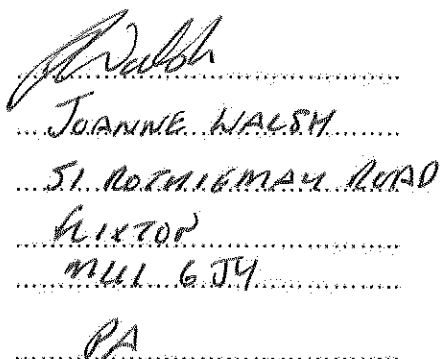 J Walsh
JOANNE WALSH
51 ROTHIEMAY ROAD
FLIXTON
M41 6JY
PA